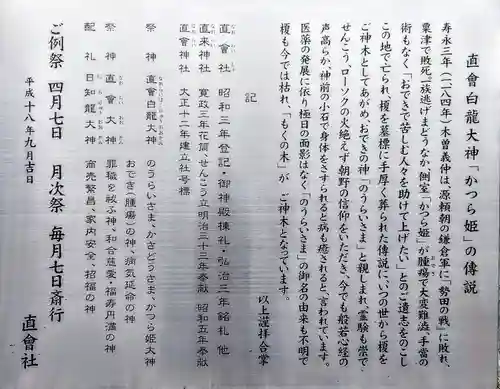 直會白龍大神「かつら姫」の伝説
寿永三年(一一八四年)木曽義仲は、源頼朝の鎌倉軍に「勢田の戦」に敗れ、
粟津で敗死、一族逃げまどうなか、側室「かつら姫」が腫瘍で大変難渋、手當の
術もなく「おできで苦しむ人々を助けて上げたい」とのご遺志をのこし
この地で亡られ、榎を墓標に手厚く葬られた伝説に、いつの世から榎を
ご神木としてあがめ、おできの神「のうらいさま」と親しまれ、霊験も崇で
せんこう、ローソクの火絶えず朝野の信仰をいただき、今でも般若心経の
声高らか、神前の小石で身体をさすられると病も癒されると言われています。
医薬の発展に依り極日の面影はなく「のうらいさま」の御名の由来も不明で
榎も今では枯れ、「もくの木」が、ご神木となっています。
以上謹拝合掌
記
直會社 昭和三年登記・御神殿棟札・弘治三年銘札 他
直来神社 寛政三年花筒・せんこう立 明治三十三年奉献 昭和五年奉献
直會神社 大正十二年建立社号標
祭神 直會白龍大神 のうらいさま、かさどうさま、かつら姫大神
おでき(腫瘍)の神、病気延命の神
祭神 直會大神 罪穢を祓ふ神、和合慈愛・福寿円満の神
配礼 日知龍大神 商売繁昌、家内安全、招福の神
平成十八年九月吉日
ご例祭 四月七日 月次祭 毎月七日斎行
直會社